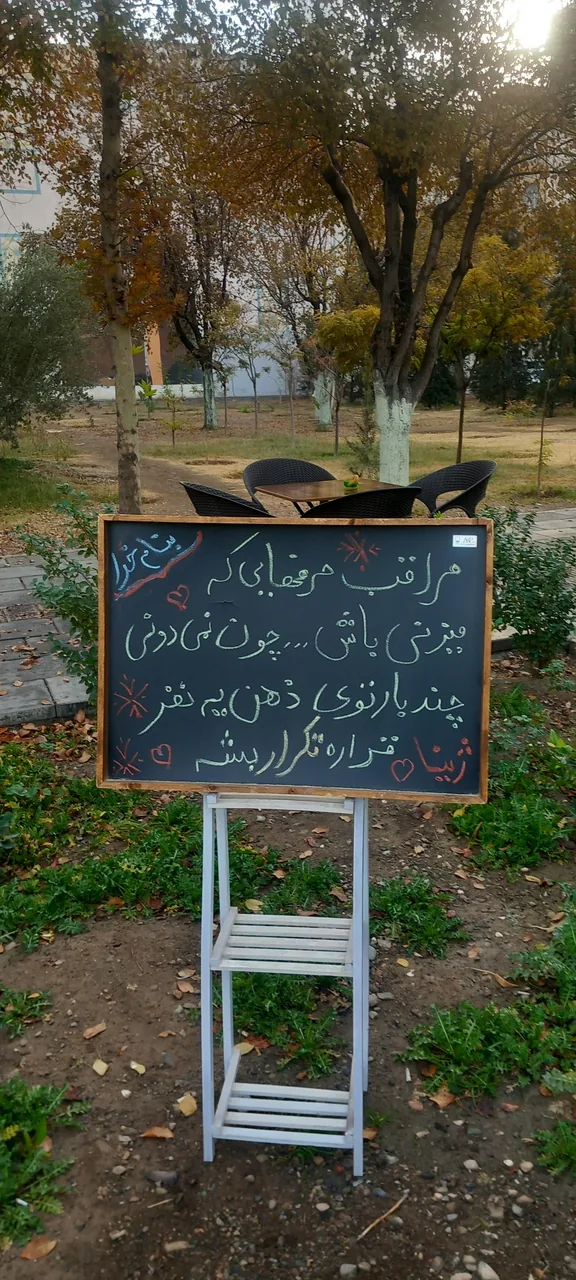 بنام خدا
مراقب حرفهایی که
میزنی باش ... چون نمی دونی
چند بار توی ذهن یه نفر
قراره تکرار بشه
ژینا